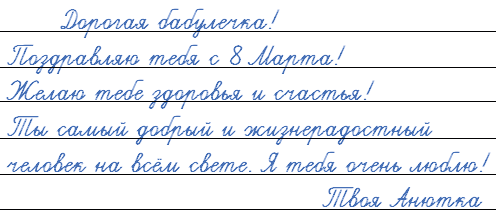 Дорогая бабулечка!
Поздравляю тебя с 8 Марта!
Желаю тебе здоровья и счастья!
Ты самый добрый и жизнерадостный
человек на всём свете. Я тебя очень люблю!
Твоя Анютка